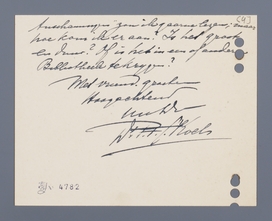 (4)
Beschouwingen zou ik gaarne lezen, maar
hoe kom ik er aan? Is het groot
en duur? Of is het in een of andere
Bibliotheek te krijgen?
Met vriend. groeten
Hoogachtend
Uw Dr.
Dr. P. J. Koets
4782